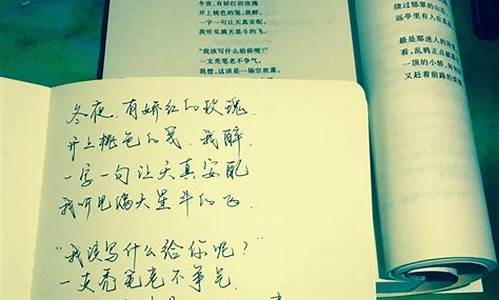 冬夜，有娇红的玫瑰
开上桃色的笺，我醉，
一字一句让天真安配
我听见满天星斗的飞
"我该写什么给你呢？"
一支秃笔老不争气，
我想，这该是一场空欢喜，
绕过郁翠的
远亭里有人在
最是那迷人的
看，乱鸦正
一顶的小轿，
又赶着前路的
冬夜，有娇红的玫瑰
开上桃色的笺，我醉，
一字一句让天真安配
我听见满天星斗的飞
"我该写什么给你呢？"
一支秃笔老不争气